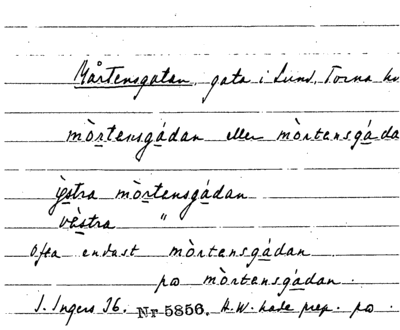 Mårtensgatan, gata i Lund, Torna
mòrtensgádan eller mòrtensgáda
ýstra mòrtensgádan
vèstra "
Ofta endast mòrtensgádan
pa mòrtensgádan.
I. Ingers 36. Nr 5856. H.W. hade prep. pa.